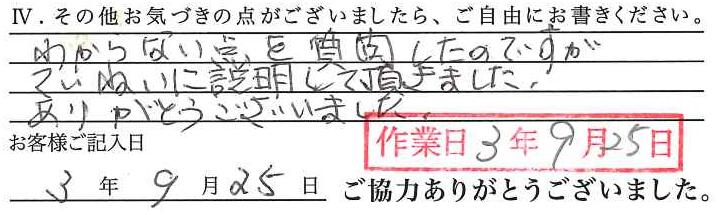 Ⅳ．その他お気づきの点がございましたら、ご自由にお書きください。
わからない点を質問したのですが
ていねいに説明して頂きました。
ありがとうございました。
お客様ご記入日
作業日3年9月25日
3年9月25日 ご協力ありがとうございました。